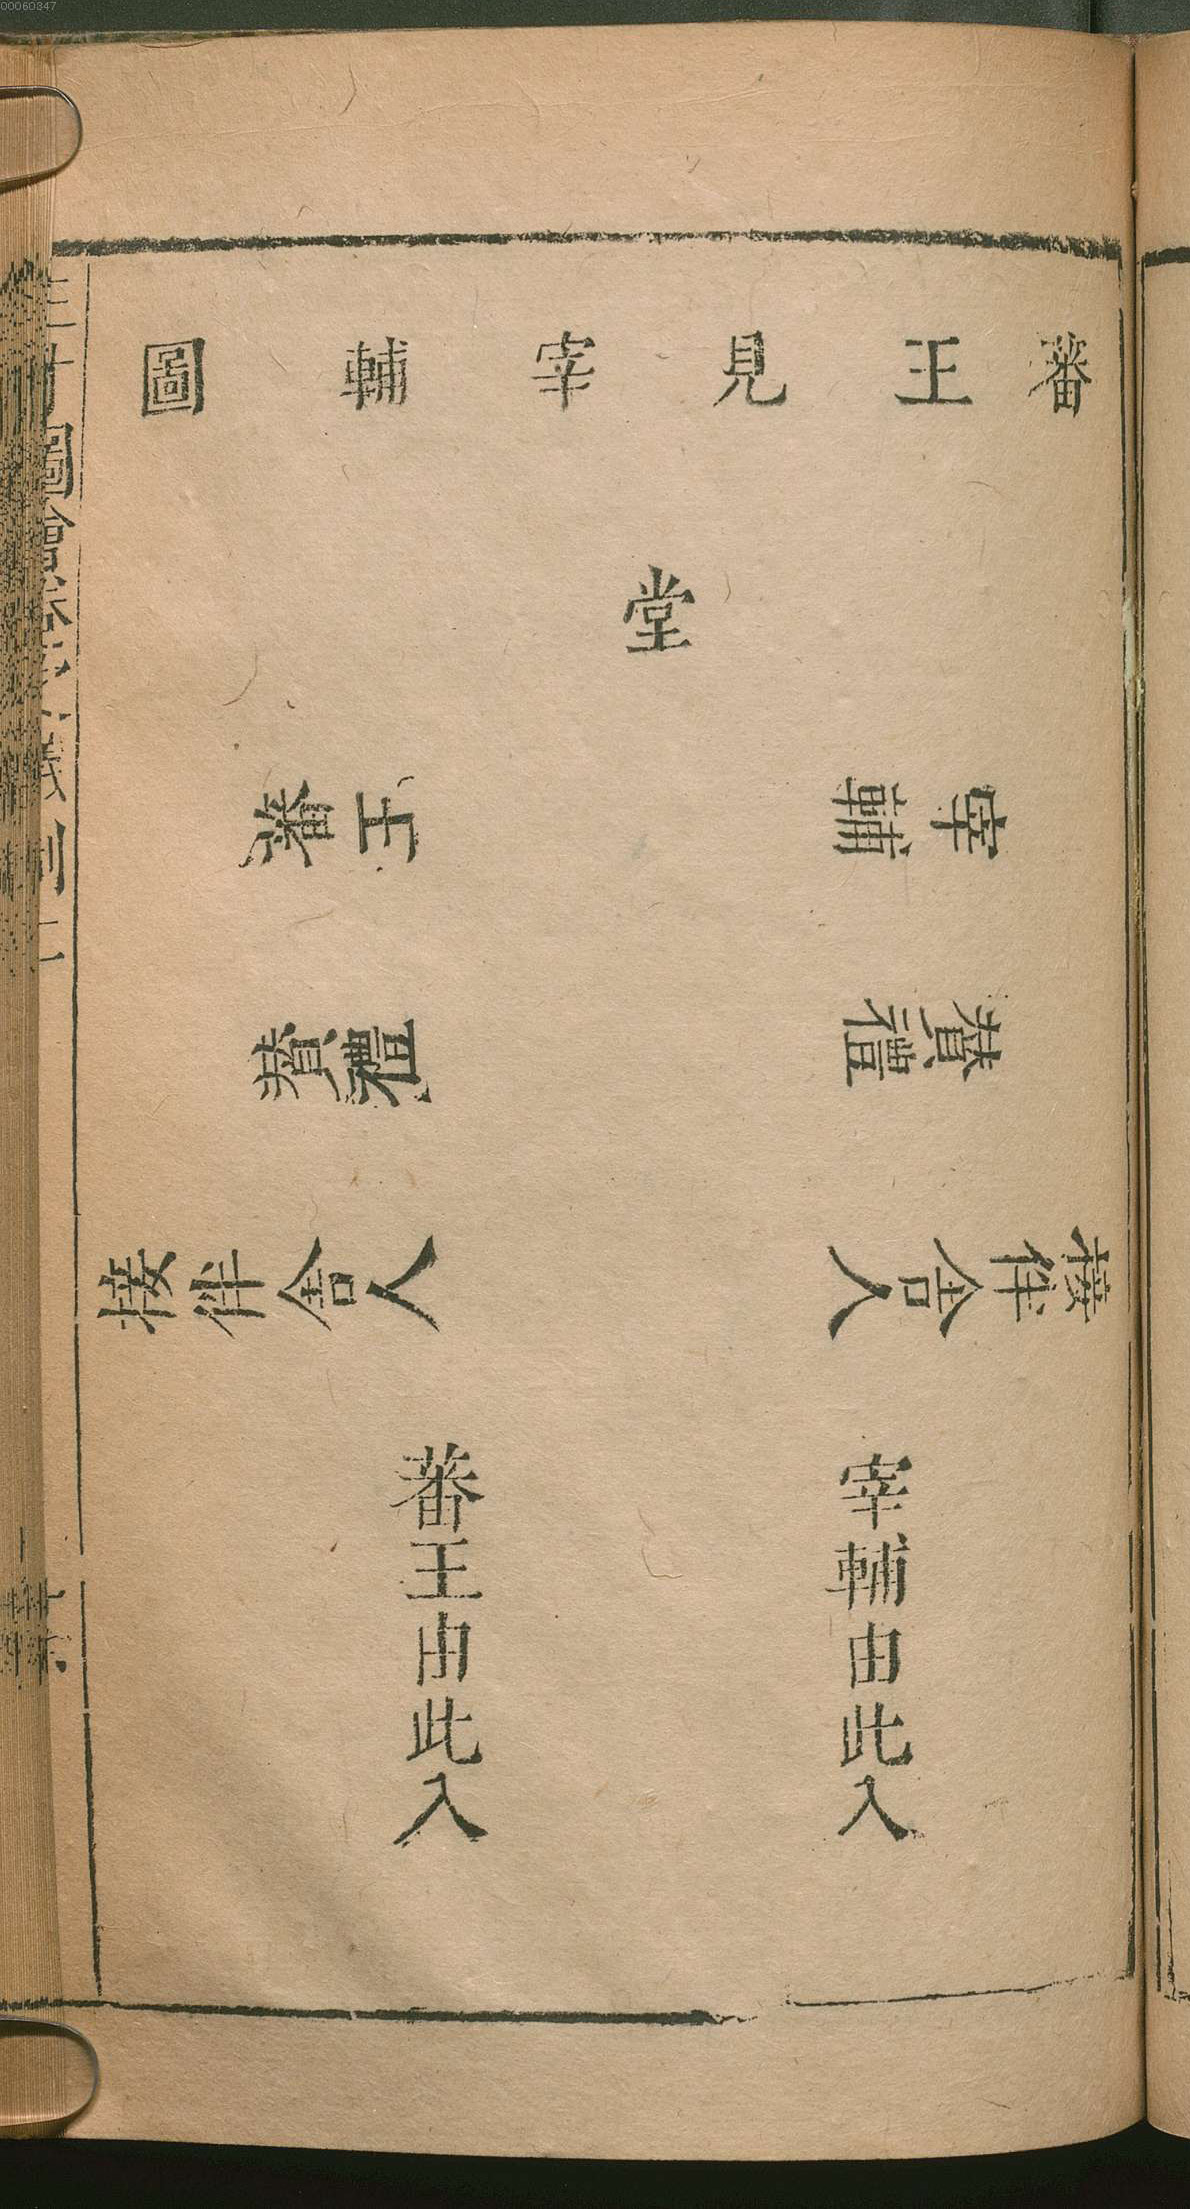 00060347
蕃王見宰輔圖
堂
宰輔
蕃王
贊禮
贊禮
接伴舍人
接伴舍人
宰輔由此入
蕃王由此入
圖會
儀制二